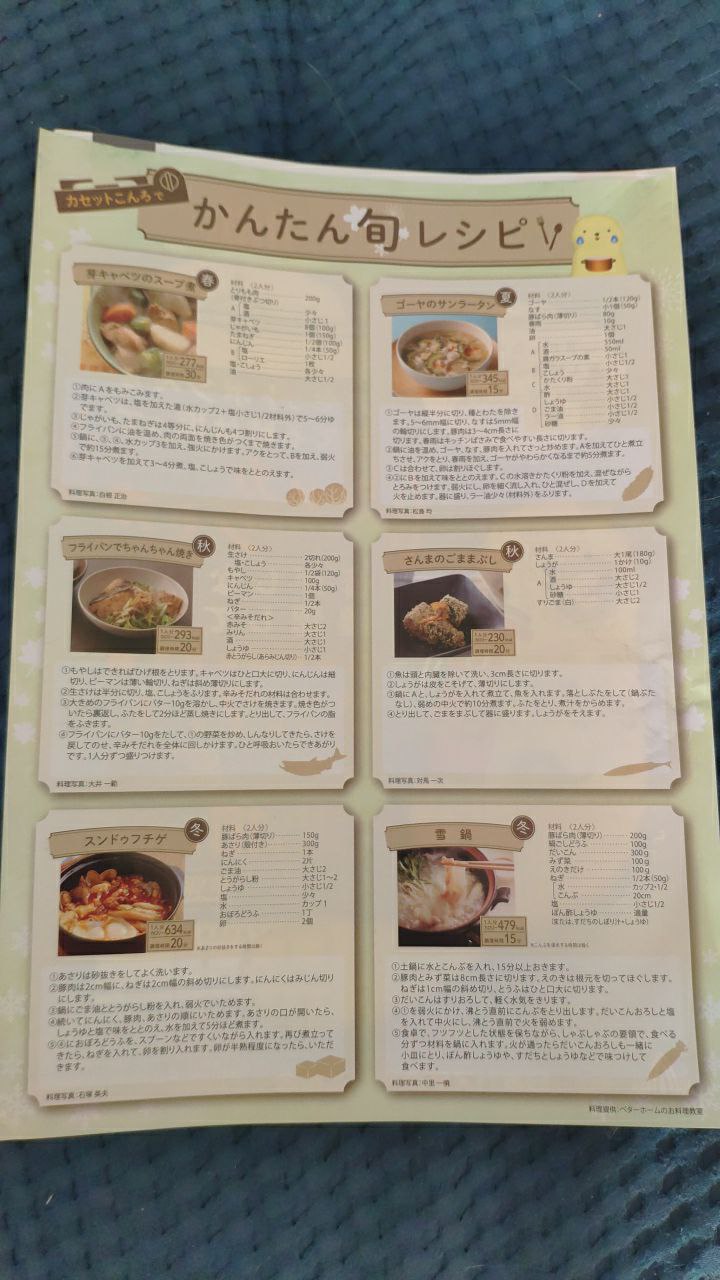 カセットこんろで
かんたん旬レシピ
芽キャベツのスープ煮
春
材料 〈2人分〉
とりもも肉
(骨付きぶつ切り) 200g
A 塩
酒 少々
芽キャベツ 小さじ1
じゃがいも 8個(100g)
たまねぎ 1個(150g)
にんじん 1/2個(100g)
B 塩 1/4本(50g)
ローリエ 小さじ1/2
塩・こしょう 1枚
油 各少々
大さじ1/2
1人分
カロリー277kcal
調理時間30分
①肉にAをもみこみます。
②芽キャベツは、塩を加えた湯(水カップ2+塩小さじ1/2材料外)で5~6分ゆ
でます。
③じゃがいも、たまねぎは4等分に、にんじんも4つ割りにします。
④フライパンに油を温め、肉の両面を焼き色がつくまで焼きます。
⑤鍋に、③、④、水カップ3を加え、強火にかけます。アクをとって、Bを加え、弱火
で約15分煮ます。
⑥芽キャベツを加えて3~4分煮、塩、こしょうで味をととのえます。
料理写真:白根 正治
ゴーヤのサンラータン
夏
材料 〈2人分〉
ゴーヤ 1/2本(120g)
なす 小1個(50g)
豚ばら肉(薄切り) 80g
春雨 10g
油 大さじ1
卵 1個
A 水 550ml
酒 50ml
鶏ガラスープの素 小さじ1
B 塩 小さじ1/2
こしょう 少々
C かたくり粉 大さじ1
水 大さじ2
D 酢 大さじ1
しょうゆ 小さじ1/2
ごま油 小さじ1/2
ラー油 小さじ1/2
砂糖 少々
1人分
カロリー345kcal
調理時間15分
①ゴーヤは縦半分に切り、種とわたを除き
ます。5~6mm幅に切り、なすは5mm幅
の輪切りにします。豚肉は3~4cm長さに
切ります。春雨はキッチンばさみで食べやすい長さに切ります。
②鍋に油を温め、ゴーヤ、なす、豚肉を入れてさっと炒めます。Aを加えてひと煮立
ちさせ、アクをとり、春雨を加え、ゴーヤがやわらかくなるまで約5分煮ます。
③Cは合わせて、卵は割りほぐします。
④②にBを加えて味をととのえ、Cの水溶きかたくり粉を加え、混ぜながら
とろみをつけます。弱火にし、卵を細く流し入れ、ひと混ぜし、Dを加えて
火を止めます。器に盛り、ラー油少々(材料外)をふります。
料理写真:松島 均
フライパンでちゃんちゃん焼き
秋
材料 〈2人分〉
生さけ 2切れ(200g)
塩・こしょう 各少々
もやし 1/2袋(120g)
キャベツ 100g
にんじん 1/4本(50g)
ピーマン 1個
ねぎ 1/2本
バター 20g
〈辛みそだれ〉
赤みそ 大さじ2
みりん 大さじ1
酒 大さじ1
しょうゆ 小さじ1
赤とうがらし(あらみじん切り) 1/2本
1人分
カロリー293kcal
調理時間20分
①もやしはできればひげ根をとります。キャベツはひと口大に切り、にんじんは細
切り、ピーマンは薄い輪切り、ねぎは斜め薄切りにします。
②生さけは半分に切り、塩、こしょうをふります。辛みそだれの材料は合わせます。
③大きめのフライパンにバター10gを溶かし、中火でさけを焼きます。焼き色がつ
いたら裏返し、ふたをして2分ほど蒸し焼きにします。とり出して、フライパンの脂
をふきます。
④フライパンにバター10gをたして、①の野菜を炒め、しんなりしてきたら、さけを
戻してのせ、辛みそだれを全体に回しかけます。ひと呼吸おいたらできあがり
です。1人分ずつ盛りつけます。
料理写真:大井 一範
さんまのごままぶし
秋
材料 〈2人分〉
さんま 大1尾(180g)
しょうが 1かけ(10g)
A 水 100ml
酒 大さじ2
しょうゆ 大さじ1/2
砂糖 小さじ1
すりごま(白) 大さじ2
1人分
カロリー230kcal
調理時間20分
①魚は頭と内臓を除いて洗い、3cm長さに切ります。
②しょうがは皮をこそげて、薄切りにします。
③鍋にAと、しょうがを入れて煮立て、魚を入れます。落としぶたをして(鍋ぶた
なし)、弱めの中火で約10分煮ます。ふたをとり、煮汁をからめます。
④とり出して、ごまをまぶして器に盛ります。しょうがをそえます。
料理写真:対馬 一次
スンドゥフチゲ
冬
材料 〈2人分〉
豚ばら肉(薄切り) 150g
あさり(殻付き) 300g
ねぎ 1本
にんにく 2片
ごま油 大さじ2
とうがらし粉 大さじ1~2
しょうゆ 小さじ1/2
塩 少々
水 カップ1
おぼろどうふ 1丁
卵 2個
1人分
カロリー634kcal
調理時間20分
※あさりの砂抜きをする時間は除く
①あさりは砂抜きをしてよく洗います。
②豚肉は2cm幅に、ねぎは2cm幅の斜め切りにします。にんにくはみじん切り
にします。
③鍋にごま油ととうがらし粉を入れ、弱火でいためます。
④続いてにんにく、豚肉、あさりの順にいためます。あさりの口が開いたら、
しょうゆと塩で味をととのえ、水を加えて5分ほど煮ます。
⑤④におぼろどうふを、スプーンなどですくいながら入れます。再び煮立って
きたら、ねぎを入れて、卵を割り入れます。卵が半熟程度になったら、いただ
きます。
料理写真:石塚 英夫
雪鍋
冬
材料 〈2人分〉
豚ばら肉(薄切り) 200g
絹ごしどうふ 100g
だいこん 300g
みず菜 100g
えのきだけ 100g
ねぎ 1/2本(50g)
水 カップ2・1/2
こんぶ 20cm
塩 小さじ1/2
ぽん酢しょうゆ 適量
(または、すだちのしぼり汁+しょうゆ)
1人分
カロリー479kcal
調理時間15分
※こんぶを浸水する時間は除く
①土鍋に水とこんぶを入れ、15分以上おきます。
②豚肉とみず菜は8cm長さに切ります。えのきは根元を切ってほぐします。
ねぎは1cm幅の斜め切り、とうふはひと口大に切ります。
③だいこんはすりおろして、軽く水気をきります。
④①を弱火にかけ、沸とう直前にこんぶをとり出します。だいこんおろしと塩
を入れて中火にし、沸とう直前で火を弱めます。
⑤食卓で、フツフツとした状態を保ちながら、しゃぶしゃぶの要領で、食べる
分ずつ材料を鍋に入れます。火が通ったらだいこんおろしも一緒に
小皿にとり、ぽん酢しょうゆや、すだちとしょうゆなどで味つけして
食べます。
料理写真:中里 一暁
料理提供:ベターホームのお料理教室